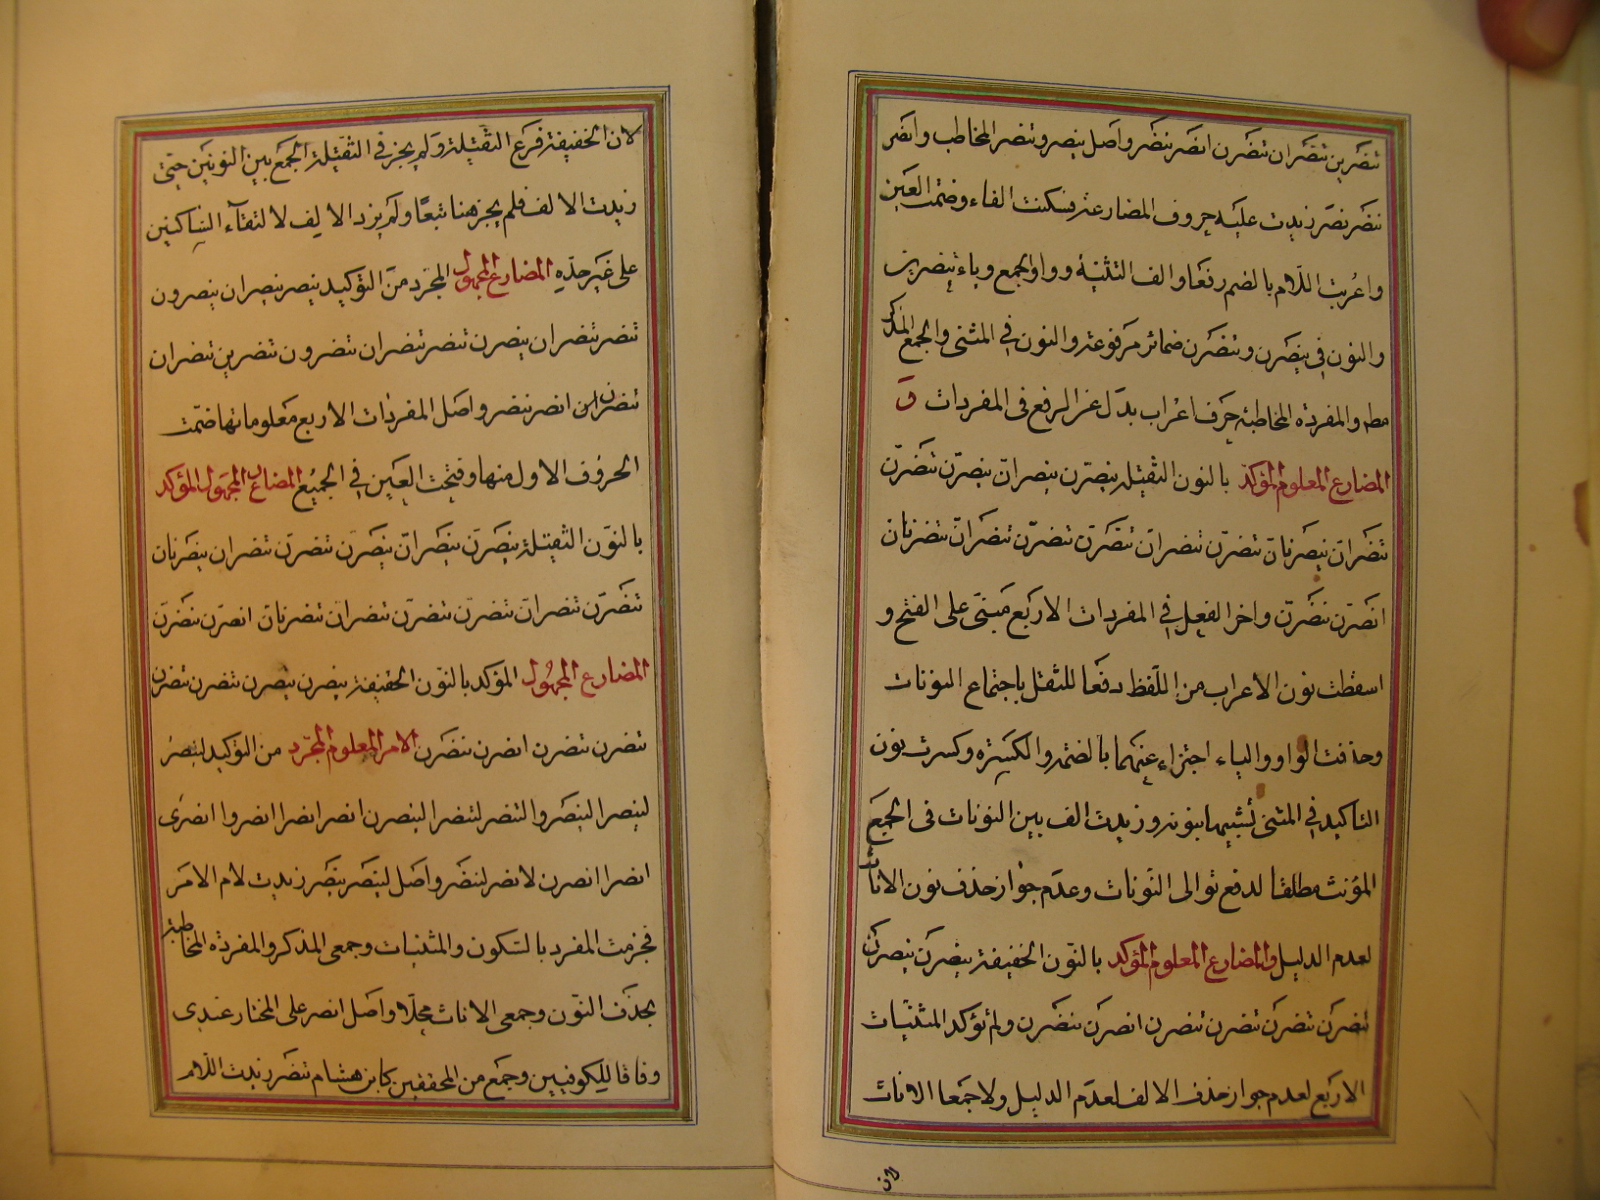 تنصرين تنصران تنصرن انصر ننصر واصل ينصر وتنصر المخاطب وانصر
ننصر نصر زيدت عليه حروف المضارعة فسكنت الفاء وضمت العين
واعربت اللام بالضم رفعا والف التثنية وواو الجمع وياء تنصرين
والنون في ينصرن وتنصرن ضمائر مرفوعة والنون في المثنى والجمع المذكر
مط والمفردة المخاطبة حرف اعراب بدل عن الرفع في المفردات و
المضارع المعلوم المؤكد بالنون الثقيلة ينصرن ينصران ينصرن تنصرن
تنصران ينصرنان تنصرن تنصران تنصرن تنصرن تنصران تنصرنان
انصرن ننصرن واخر الفعل في المفردات الاربع مبنى على الفتح و
اسقطت نون الاعراب من اللفظ دفعا للثقل باجتماع النونات
وحذفت الواو والياء اجتزاء عنهما بالضمة والكسرة وكسرت نون
التاكيد في المثنى تشبيها بنونه وزيدت الف بين النونات في الجمع
المؤنث مطلقا لدفع توالى النونات وعدم جواز حذف نون الاناث
لعدم الدليل والمضارع المعلوم المؤكد بالنون الخفيفة ينصرن ينصرن
تنصرن تنصرن تنصرن تنصرن انصرن ننصرن ولم تؤكد المثنيات
الاربع لعدم جواز حذف الالف لعدم الدليل ولا جمعا الاناث
لان
لان الخفيفة فرع الثقيلة ولم يجز في الثقيلة الجمع بين النونين حتى
زيدت الالف فلم يجز هنا تبعا ولم يزد الالف لالتقاء الساكنين
على غير حده المضارع المجهول المجرد من التؤكيد ينصر ينصران ينصرون
تنصر تنصران ينصرن تنصر تنصران تنصرون تنصرين تنصران
تنصرن انصر ننصر واصل المفردات الاربع معلوماتها ضمت
الحروف الاول منها وفتحت العين في الجميع المضارع المجهول المؤكد
بالنون الثقيلة ينصرن ينصران ينصرن تنصرن تنصران ينصرنان
تنصرن تنصران تنصرن تنصرن تنصران تنصرنان انصرن ننصرن
المضارع المجهول المؤكد بالنون الخفيفة ينصرن ينصرن تنصرن تنصرن
تنصرن تنصرن انصرن ننصرن الامر المعلوم المجرد من التؤكيد لينصر
لينصرا لينصروا لتنصر لتنصرا لينصرن انصر انصرا انصروا انصرى
انصرا انصرن لانصر لننصر واصل لينصر ينصر زيدت لام الامر
فجزمت المفرد بالسكون والمثنيات وجمعى المذكر والمفردة المخاطبة
بحذف النون وجمعى الاناث محلا واصل انصر على المختار عندى
وفاقا للكوفيين وجمع من المحققين كابن هشام تنصر زيدت اللام